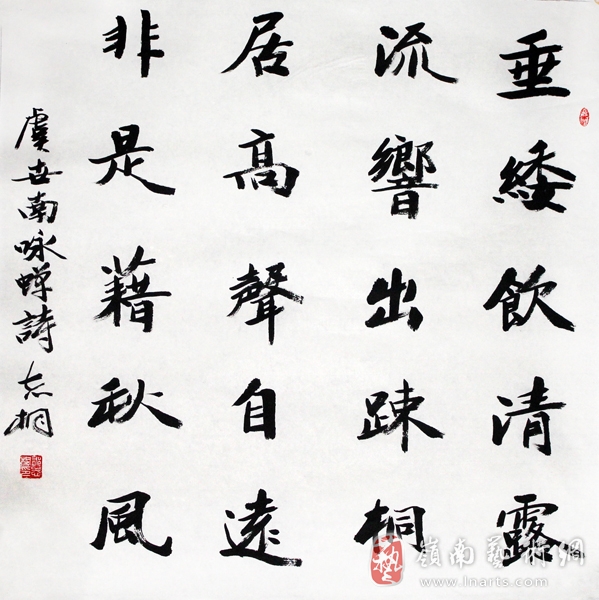 垂緌飲清露
流響出踈桐
居高聲自遠
非是藉秋風
虞世南咏蝉詩 志桐
藝 嶺南藝術網
www.lnarts.com